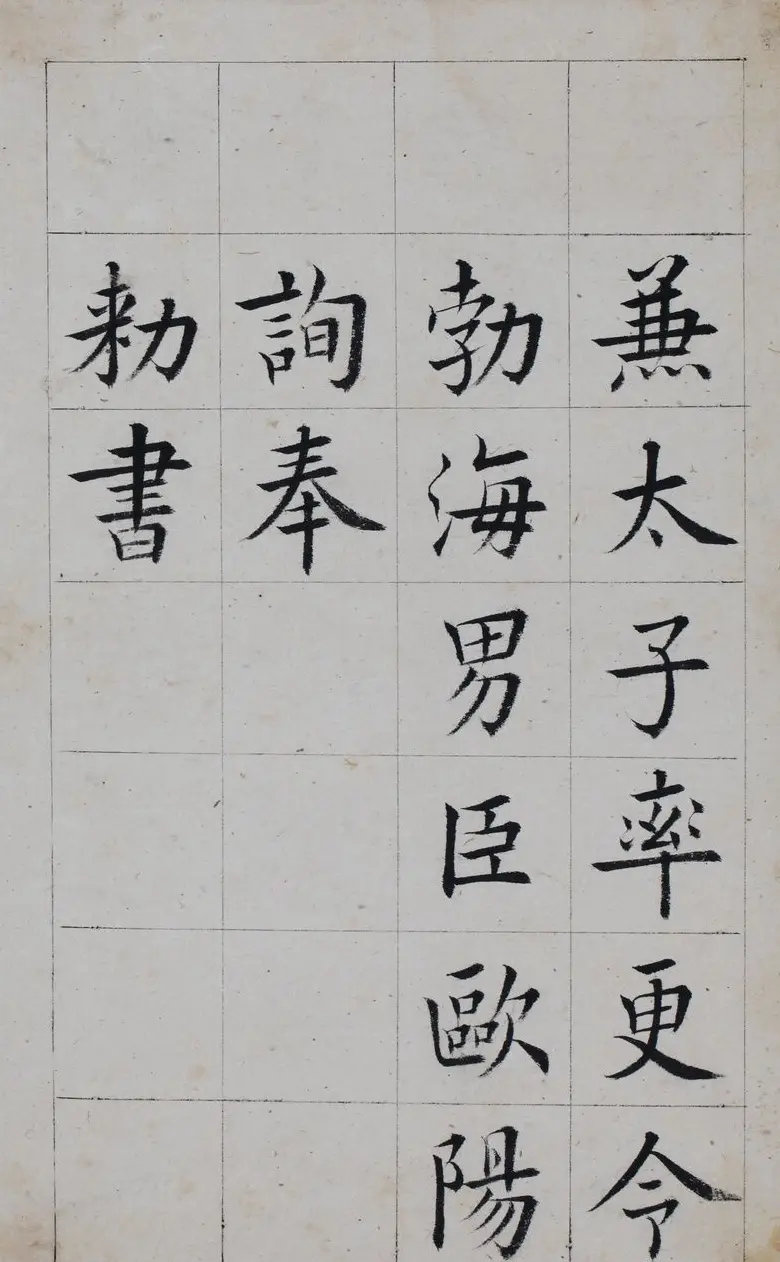 兼太子率更令
勃海男臣歐陽
詢奉
勑書